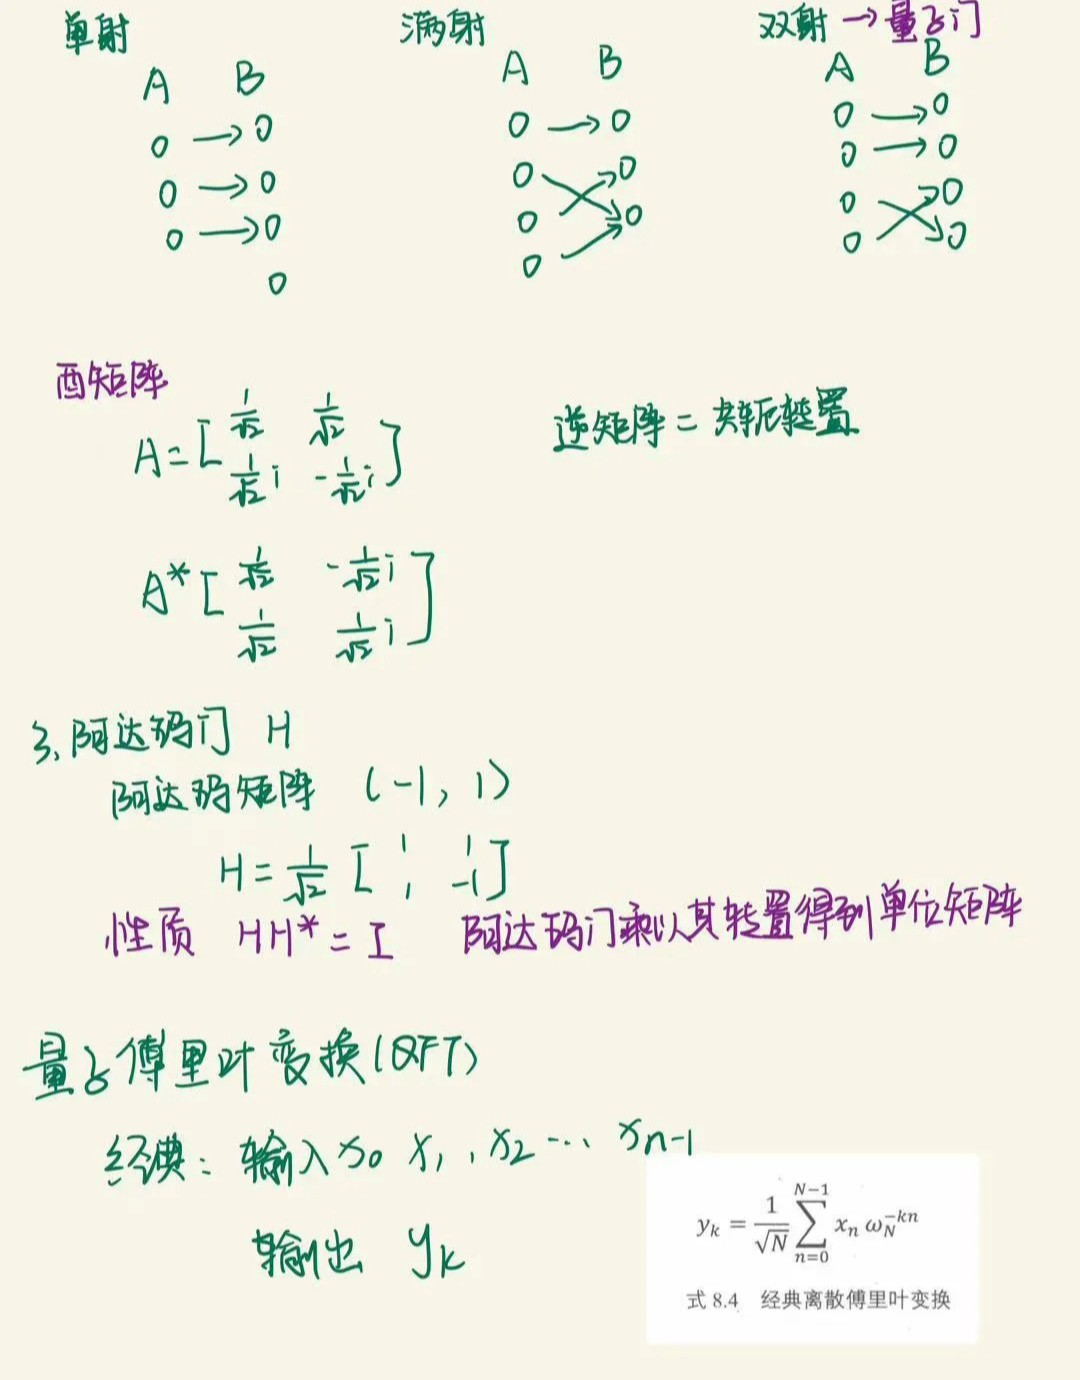 单射 满射 双射 → 量子门
A B A B A B
0 → 0 0 → 0 0 → 0
0 → 0 0 0 0 → 0
0 → 0 0 0 0 0
0 0 0 0
酉矩阵
A = [ 1/√2 1/√2
1/√2 i -1/√2 i ]
逆矩阵 = 共轭转置
A* [ 1/√2 -1/√2 i
1/√2 1/√2 i ]
3. 阿达玛门 H
阿达玛矩阵 (-1, 1)
H = 1/√2 [ 1 1
1 -1 ]
性质 HH* = I 阿达玛门乘以其转置得到单位矩阵
量子傅里叶变换(QFT)
经典: 输入 x₀ x₁, , x₂ … xₙ₋₁
输出 yₖ
y_k = 1/√N ∑_{n=0}^{N−1} x_n ω_N^{−kn}
式 8.4 经典离散傅里叶变换